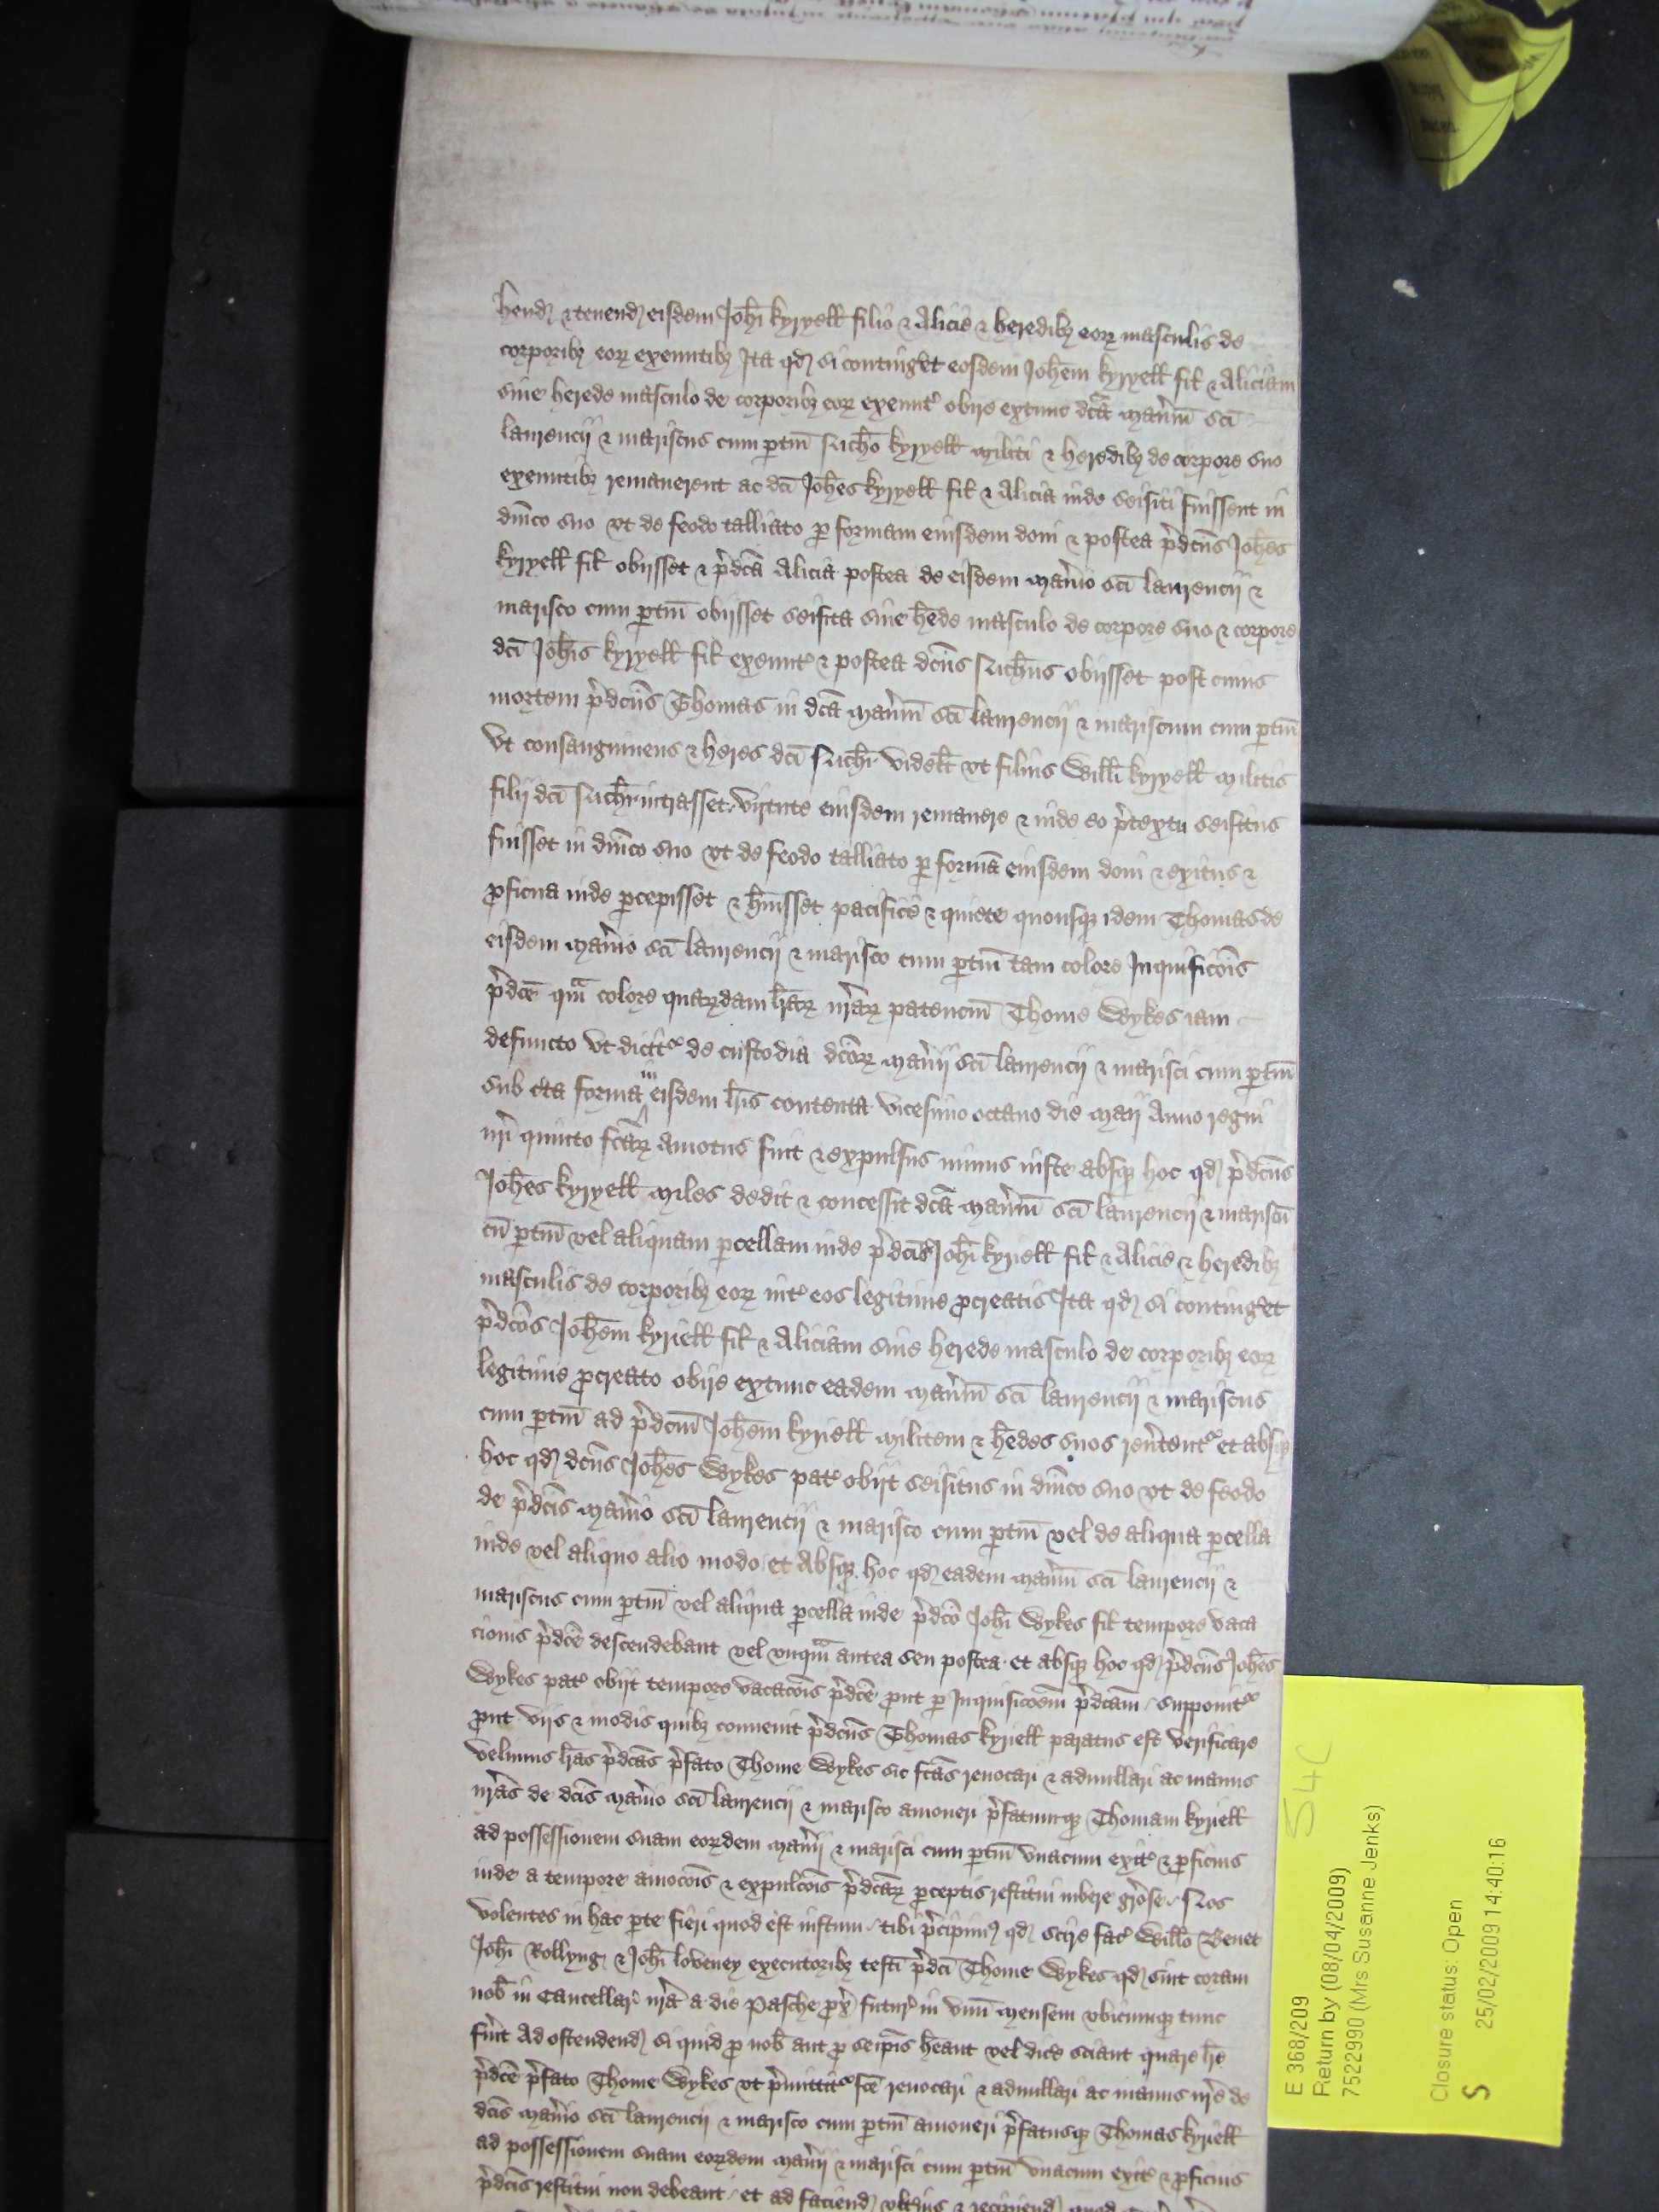 hend & tenend eisdem Joħi kyryell filio & Alicie & heredibȝ eoꝝ masculis de
corporibȝ eoꝝ exeuntibȝ Ita qd si contingˀet eosdem Joħem kyryell fiɫ & Aliciam
sine herede masculo de corporibȝ eoꝝ exeuntˀ obire extunc dc̄a Manˀiū sc̄i
laurencii & mariscus cum ꝑtin̄ Ric̄ho kyryell Militi & heredibȝ de corpore suo
exeuntibȝ remanerent ac dc̄i Joħes kyryell fiɫ & Alicia inde seisiti fuissent in
dn̄ico suo vt de feodo talliato ꝑ formam eiusdem doni & postea p̄dc̄us Joħes
kyryell fiɫ obijsset & p̄dc̄a Alicia postea de eisdem Manˀio sc̄i laurencii &
marisco cum ꝑtin̄ obijsset seisita sine ħede masculo de corpore suo & corpore
dc̄i Joħis kyryell fiɫ exeuntˀ & postea dc̄us Ric̄hus obijsset post cuius
mortem p̄dc̄us Thomas in dc̄a Manˀiū sc̄i laurencii & mariscum cum ꝑtin̄
vt consanguineus & heres dc̄i Ric̄hi videɫt vt filius Willi kyryell Militis
filii dc̄i Ric̄hi intrasset virtute eiusdem remanere & inde eo p̄textu seisitus
fuisset in dn̄ico suo vt de feodo talliato ꝑ formā eiusdem doni & exitus &
ꝓficua inde ꝑcepisset & ħuisset pacifice & quiete quousqȝ idem Thomas de
eisdem Manˀio sc̄i laurencii & marisco cum ꝑtin̄ tam colore Inquisic̄ois
p̄dc̄e qᵃm colore quaꝝdam lr̄aꝝ nr̄aꝝ patenciū Thome Wykes iam
defuncto vt dicitˀ de custodia dc̄oꝝ Manˀii sc̄i laurencii & marisci cum ꝑtin̄
sub cˀta forma in eisdem lr̄is contenta vicesimo octauo die Maii Anno regni
nr̄i quinto fc̄aꝝ amotus fuit & expulsus minus iuste absqȝ hoc qd p̄dc̄us
Joħes kyryell Miles dedit & concessit dc̄a Manˀiū sc̄i laurencii & mariscū
cū ꝑtin̄ vel aliquam ꝑcellam inde p̄dc̄is Joħi kyriell fiɫ & Alicie & heredibȝ
masculis de corporibȝ eoꝝ intˀ eos legitime ꝓcreatis Ita qd si contingˀet
p̄dc̄os Joħem kyriell fiɫ & Aliciam sine herede masculo de corporibȝ eoꝝ
legitime ꝓcreato obire extunc eadem Manˀiū sc̄i laurencii & mariscus
cum ꝑtin̄ ad p̄dc̄um Joħem kyriell Militem & ħedes suos revˀtentˀ et absqȝ
hoc qd dc̄us Joħes Wykes patˀ obijt seisitus in dn̄ico suo vt de feodo
de p̄dc̄is Manˀio sc̄i laurencii & marisco cum ꝑtin̄ vel de aliqua ꝑcella
inde vel aliquo alio modo et Absqȝ hoc qd eadem Manˀiū sc̄i laurencii &
mariscus cum ꝑtin̄ vel aliqua ꝑcella inde p̄dc̄o Joħi Wykes fiɫ tempore vaca
cionis p̄dc̄e descendebant vel vnqᵃm antea seu postea et absqȝ hoc qd p̄dc̄us Joħes
Wykes patˀ obijt tempore vacac̄ois p̄dc̄e ꝓut ꝑ Inquisic̄oem p̄dc̄am supponitˀ
ꝓut viis & modis quibȝ conuenit p̄dc̄us Thomas kyriell paratus est verificare
velimus lr̄as p̄dc̄as p̄fato Thome Wykes sic fc̄as reuocari & adnullari ac manus
nr̄as de dc̄is Manˀio sc̄i laurencii & marisco amoueri p̄fatumqȝ Thomam kyriell
ad possessionem suam eoꝝdem Manˀii & marisci cum ꝑtin̄ vnacum exitˀ & ꝓficuis
inde a tempore amoc̄ois & expulc̄ois p̄dc̄aꝝ ꝑceptis restitui iubere gr̄ose Nos
volentes in hac ꝑte fieri quod est iustum tibi p̄cipimˀ qd scire facˀ Willo Benet
Joħi Rollyng & Joħi loveney executoribȝ testi p̄dc̄i Thome Wykes qd sint coram
nob̄ in Cancellar̄ nr̄a a die Pasche ꝓx̄ futurˀ in vnū Mensem vbicumqȝ tunc
fuˀit Ad ostendend si quid ꝓ nob̄ aut ꝓ seip̄is ħeant vel dice sciant quare lr̄e
p̄dc̄e p̄fato Thome Wykes vt p̄mittitˀ fc̄e reuocari & adnullari ac manus nr̄e de
dc̄is Manˀio sc̄i laurencii & marisco cum ꝑtin̄ amoueri p̄fatusqȝ Thomas kyriell
ad possessionem suam eoꝝdem Manˀii & marisci cum ꝑtin̄ vnacum exitˀ & ꝓficuis
p̄dc̄is restitui non debeant et ad faciend vltˀius & recipiend quod
E 368/209
Return by (08/04/2009)
7522990 (Mrs Susanne Jenks)
Closure status: Open
S 25/02/2009 14:40:16
54C